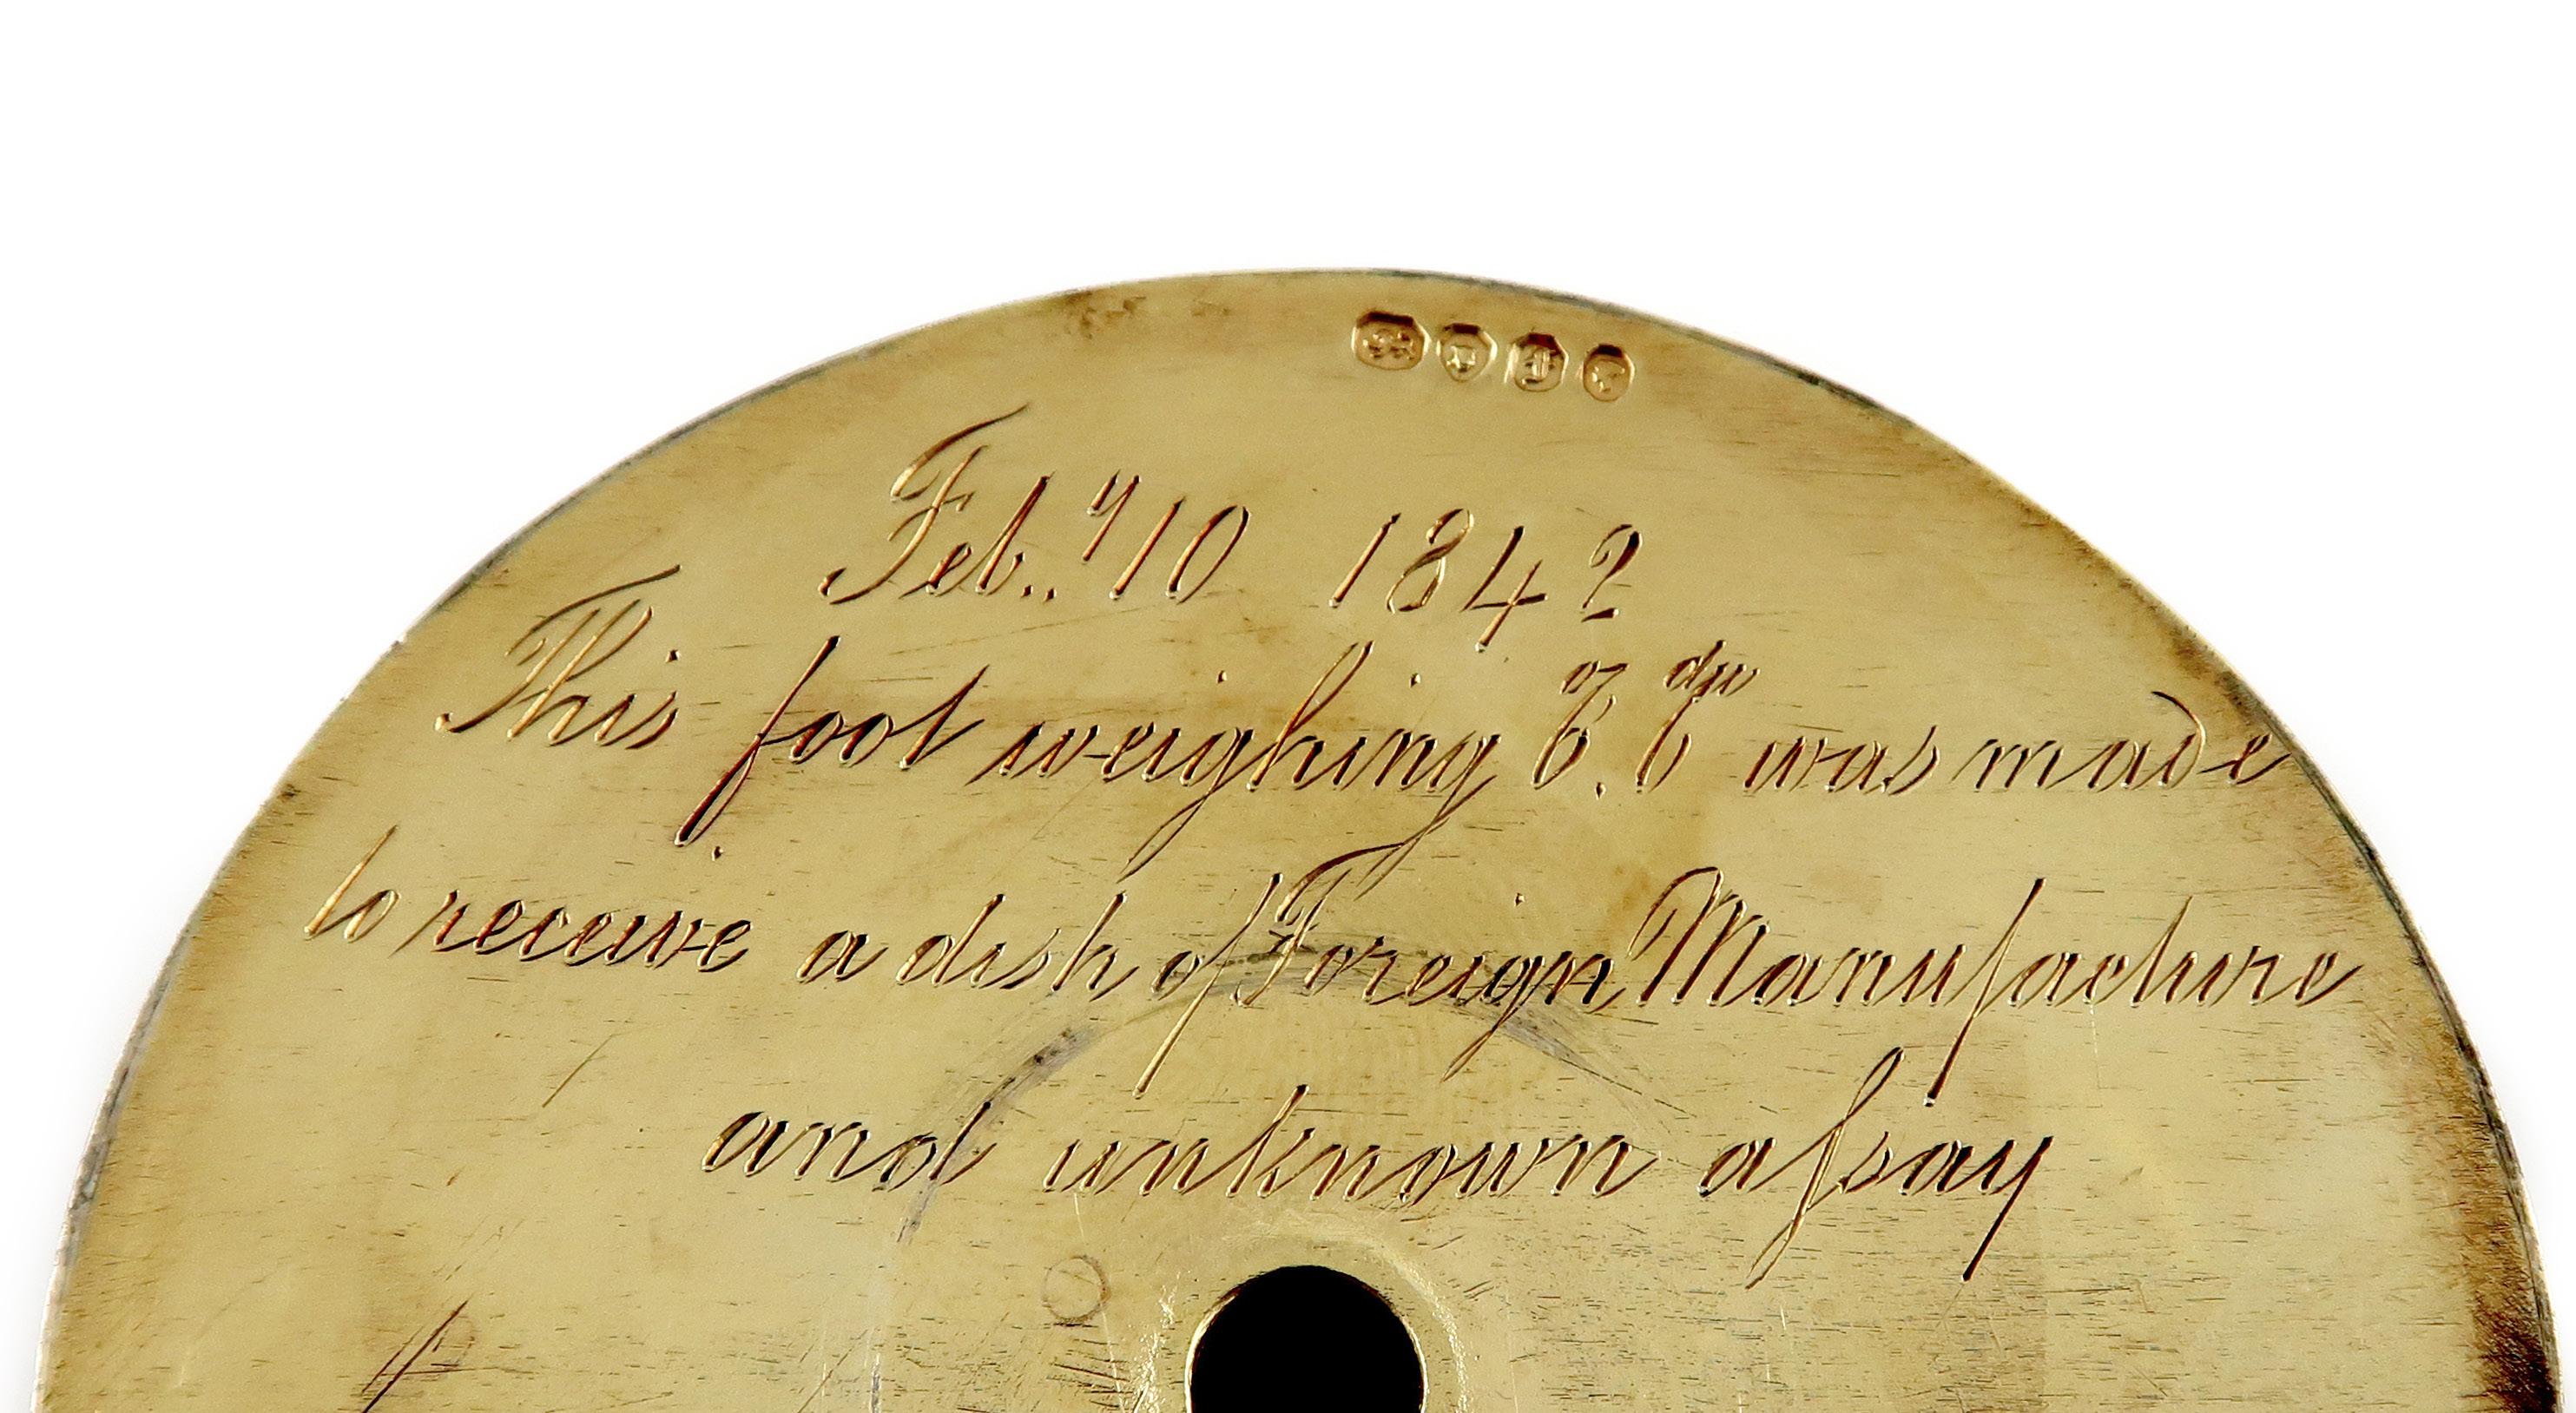 Feb..y 10 1842
This foot weighing 6.oz 6dw was made
to receive a dish of Foreign Manufacture
and unknown aſsay